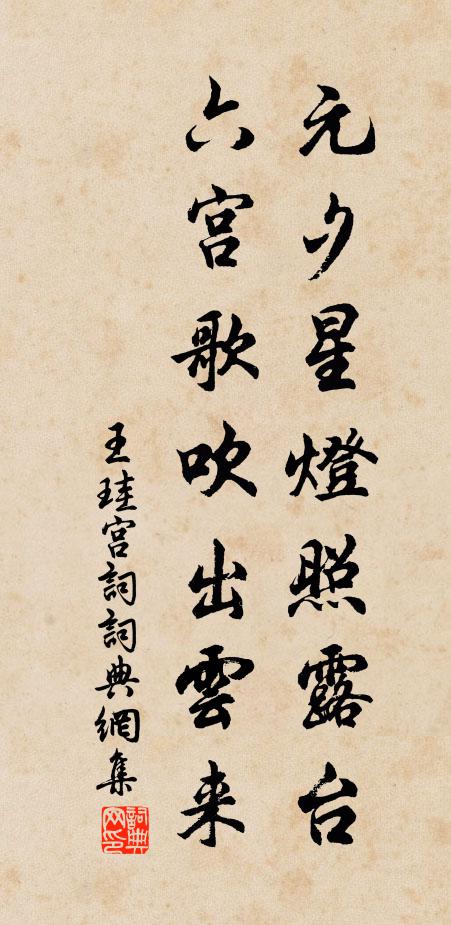 元夕星燈照露台
六宫歌吹出雲来
王珪宫詞詞典網集
詞典网印